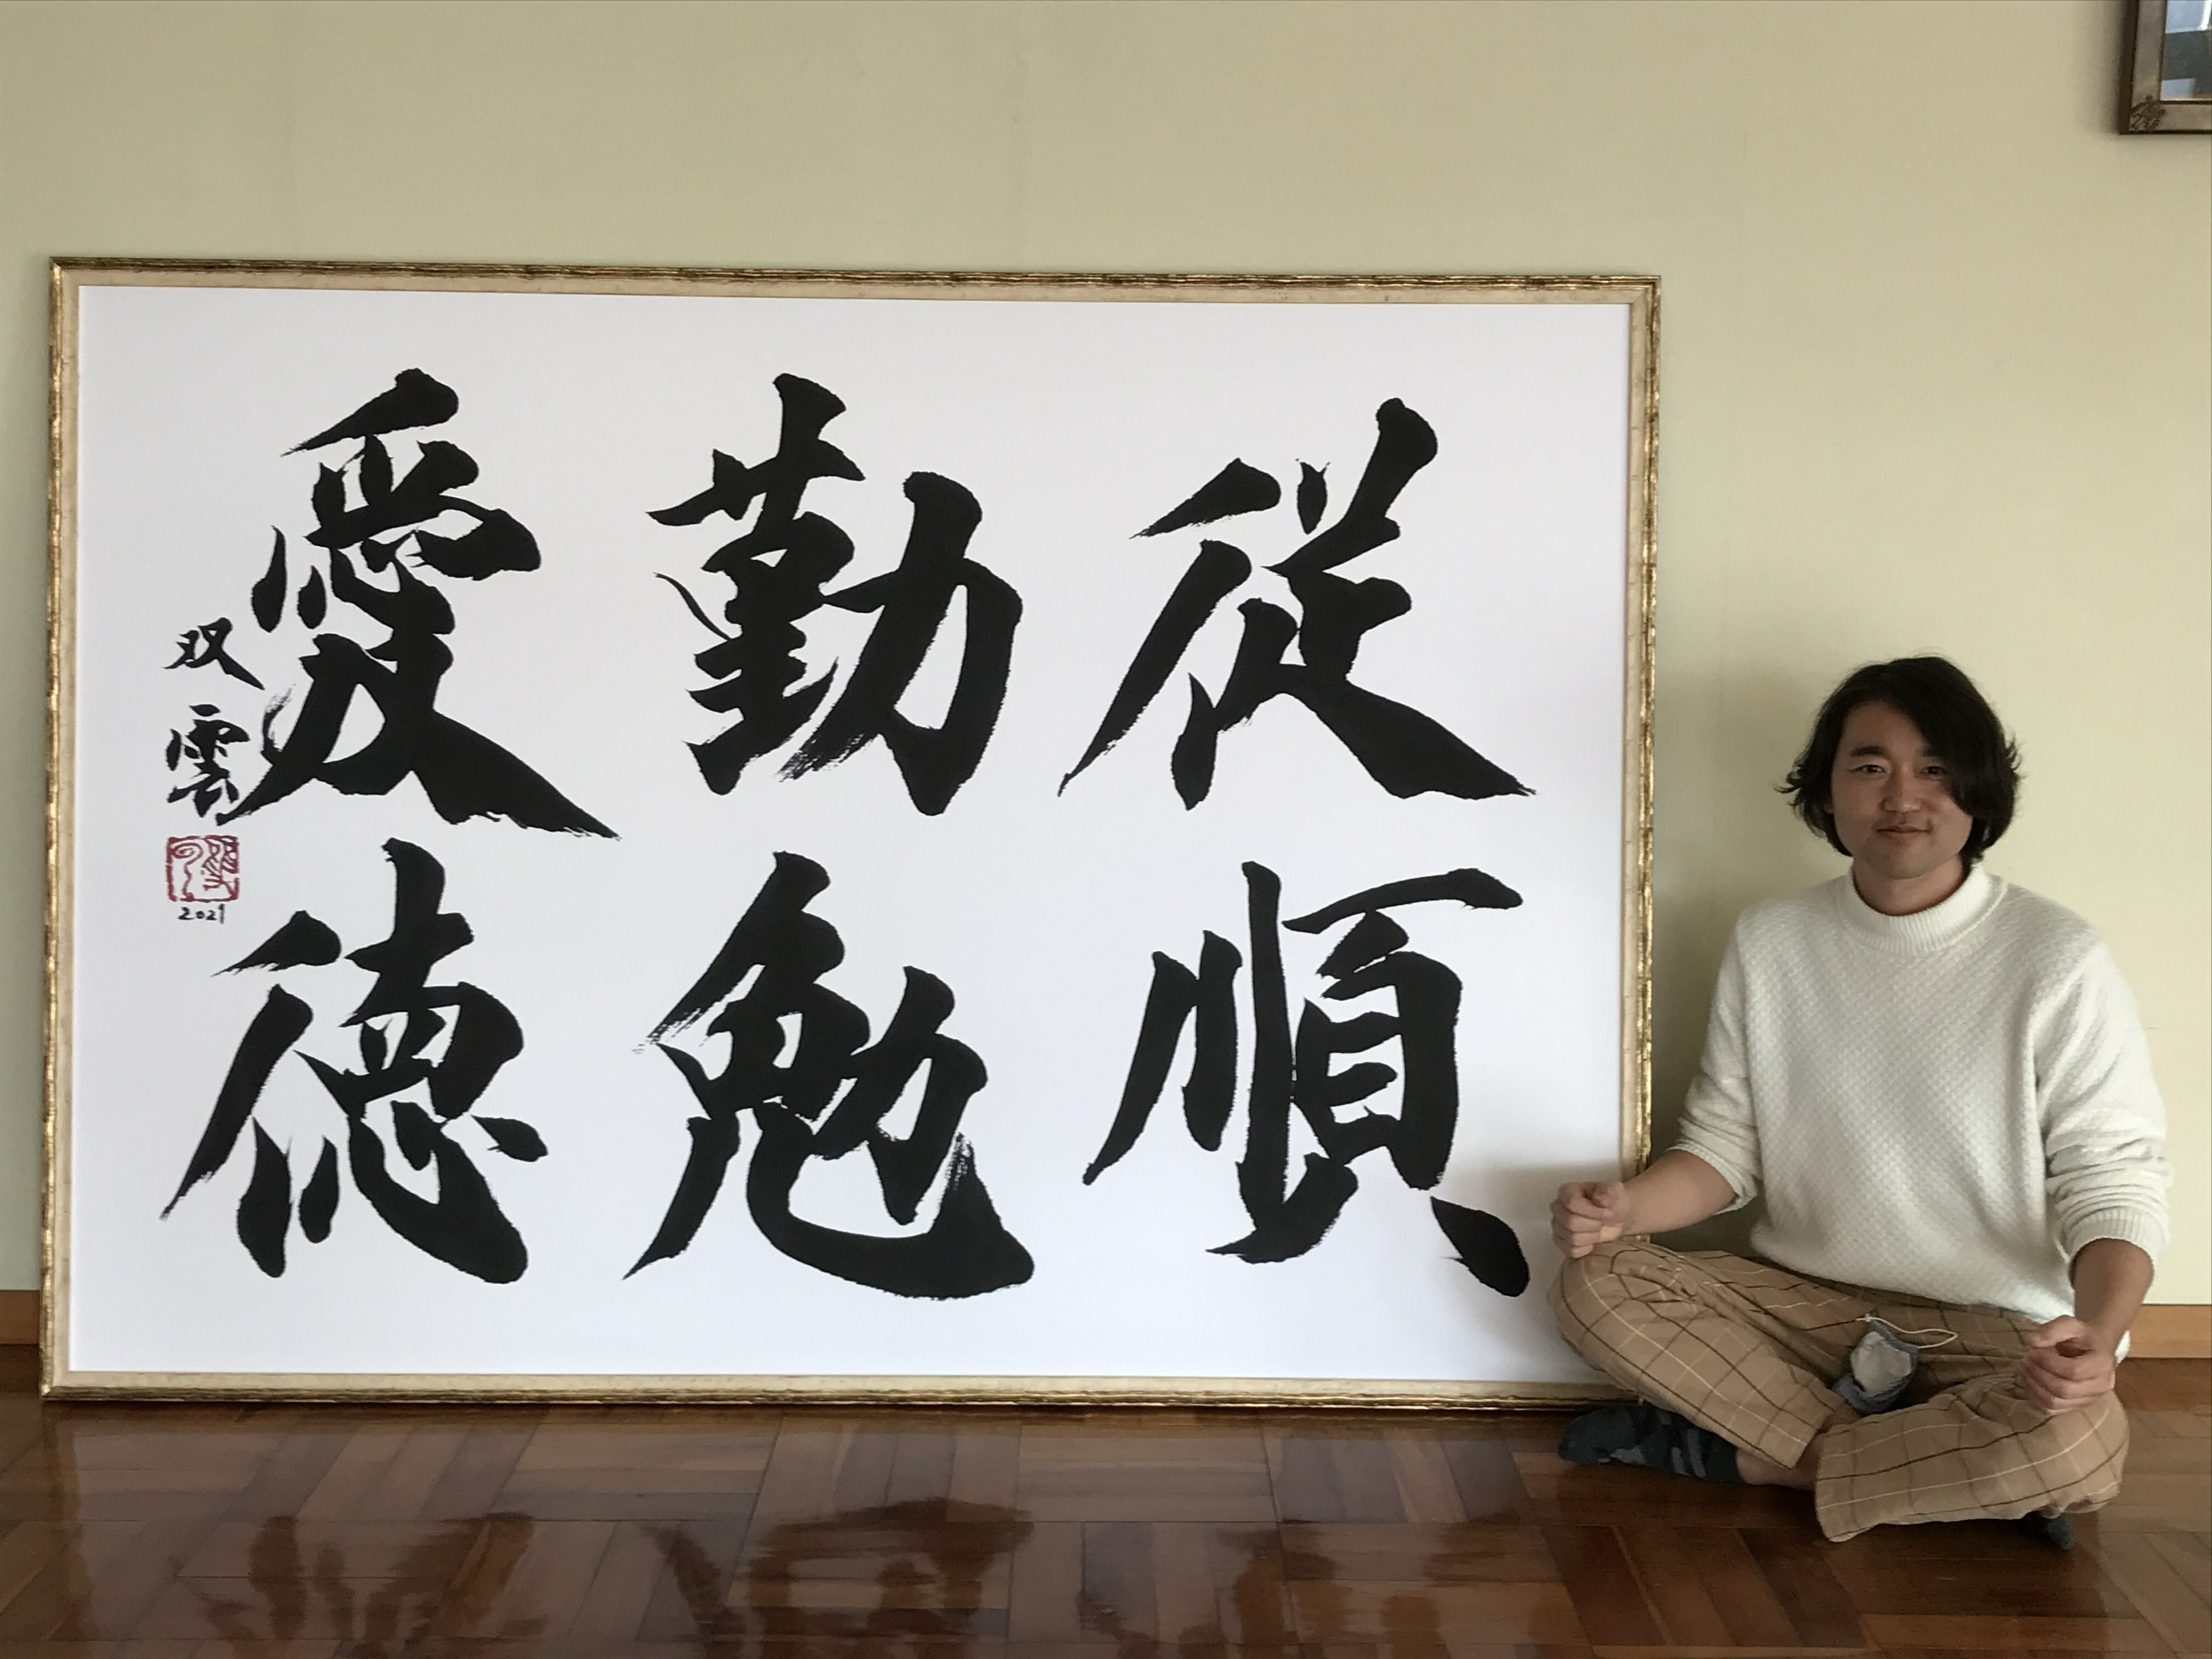 従順
勤勉
愛徳
双雲
2021